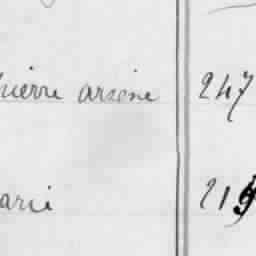 uierre arsene 247
arii 215